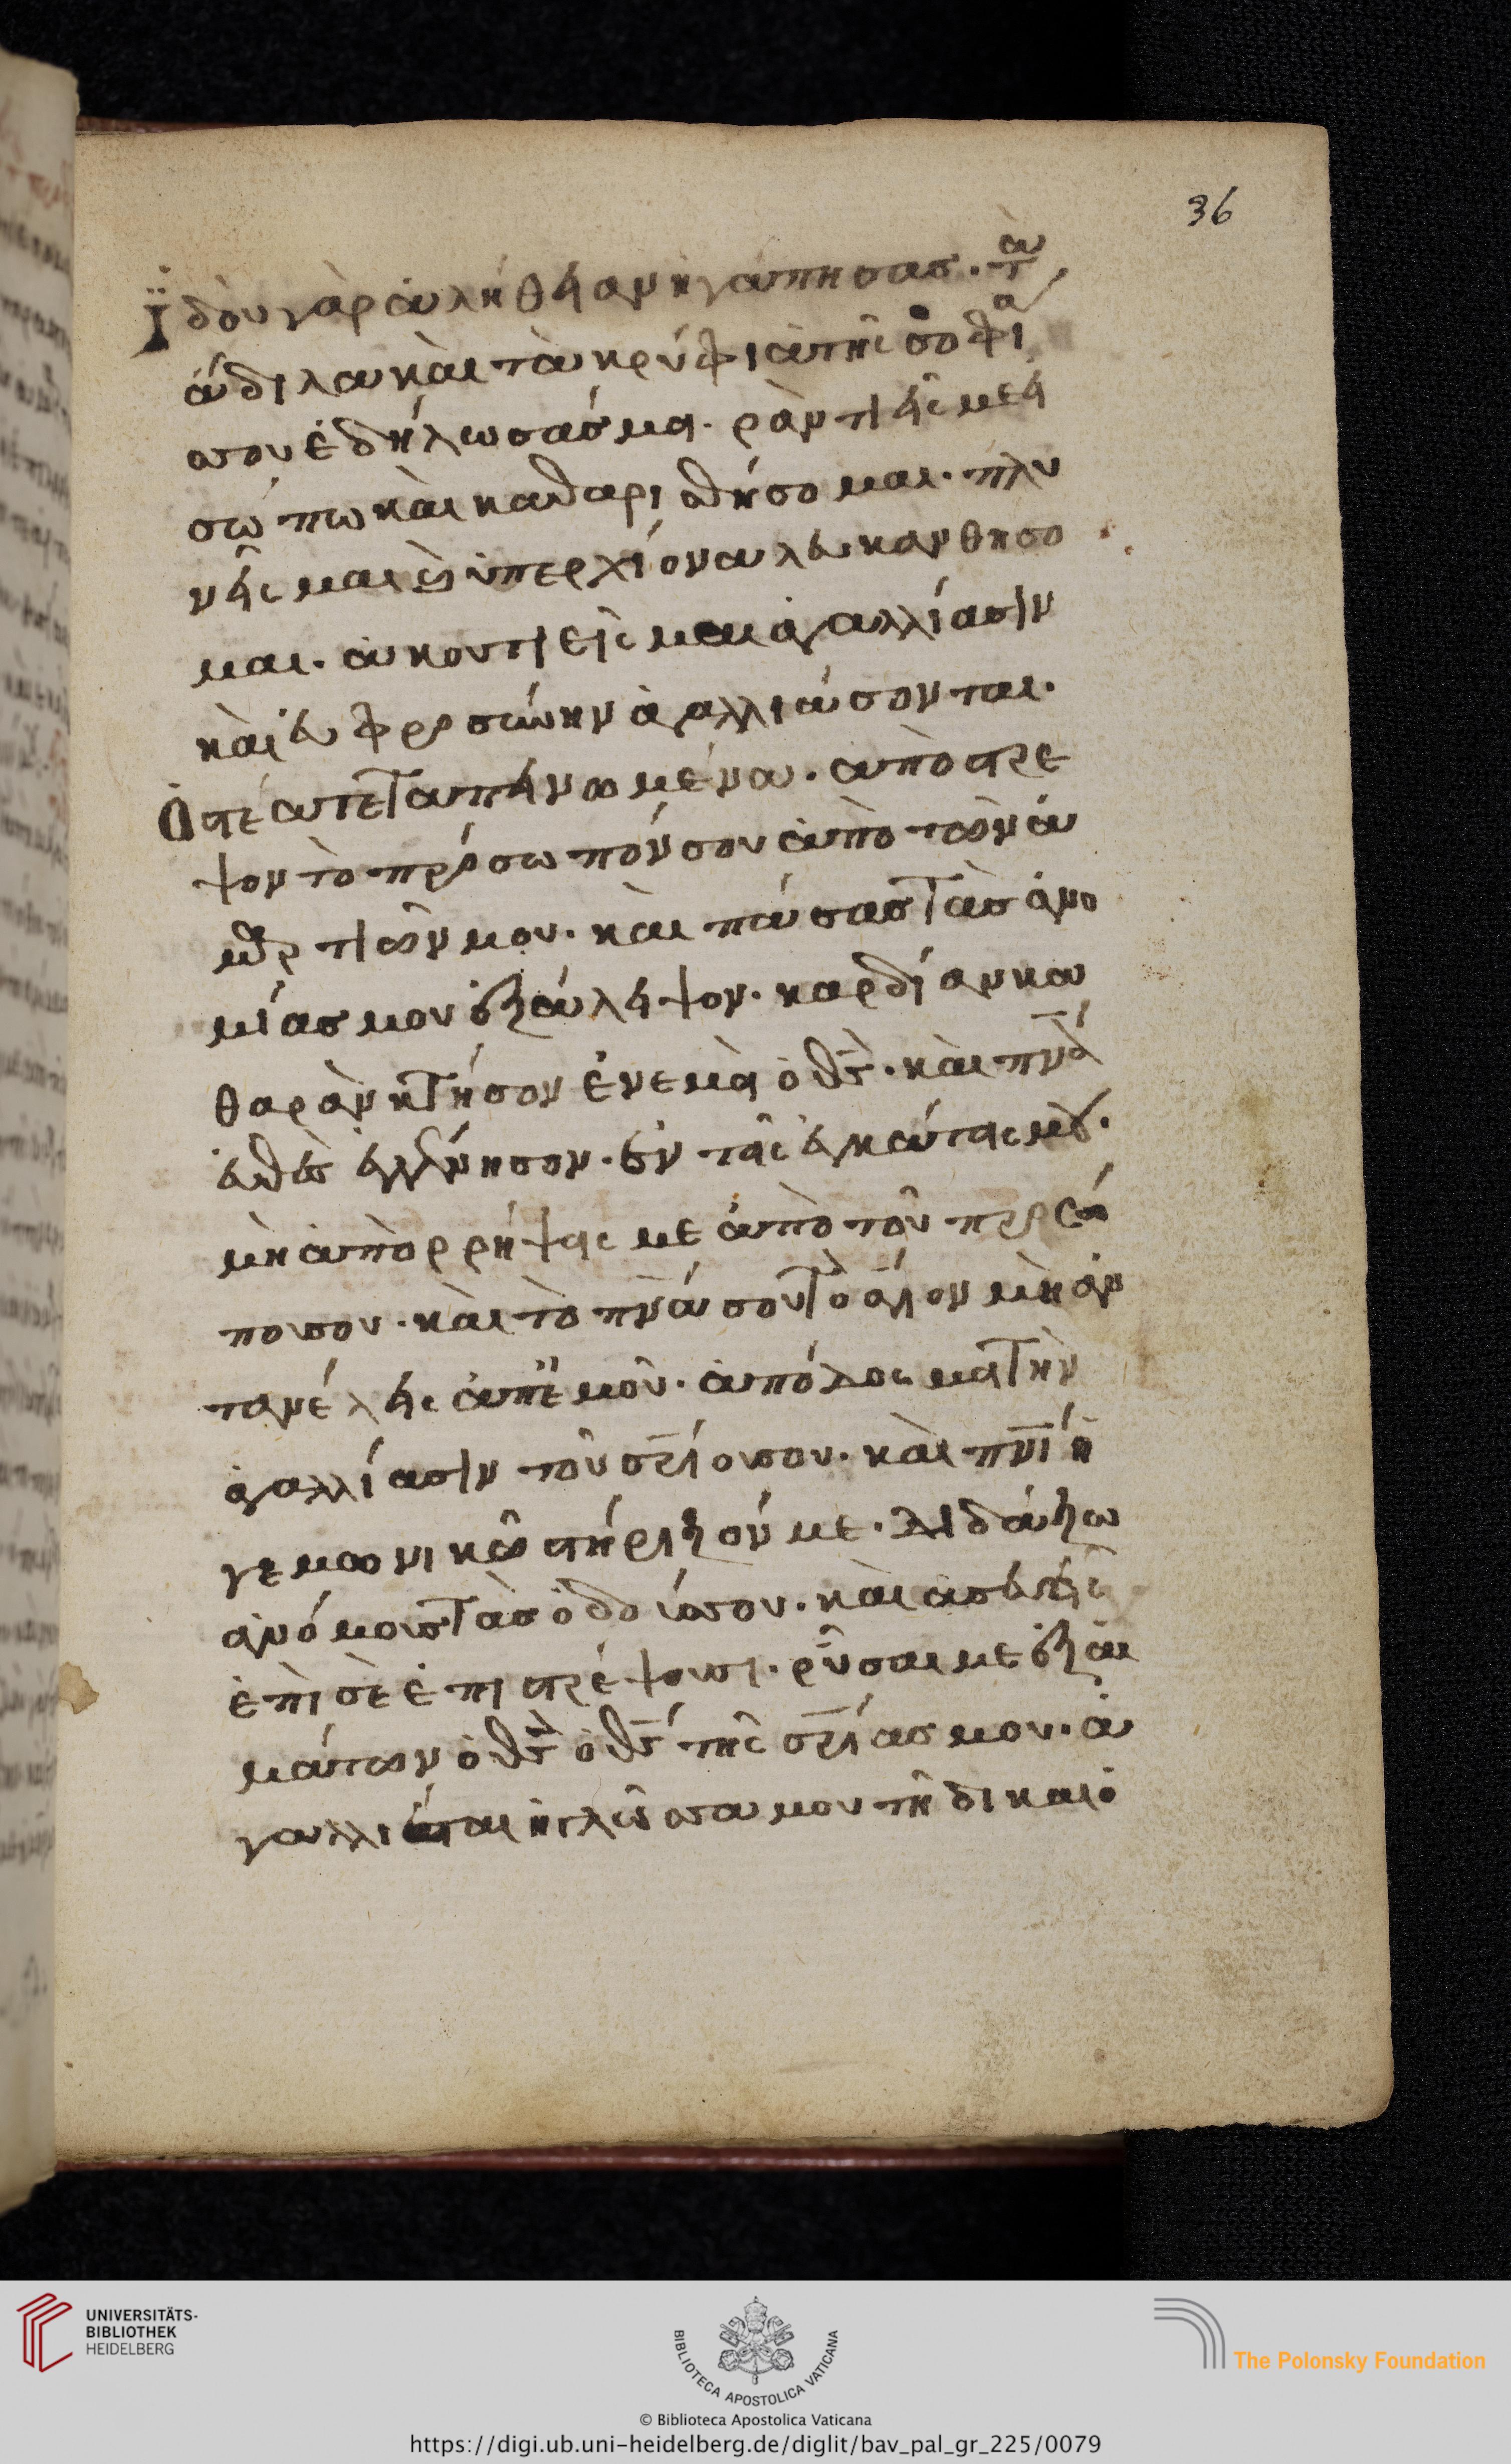 36
Ἰδοὺ γὰρ ἀλήθειαν ἠγάπησας. τὰ
ἄδιλα καὶ τὰ κρύφια τῆς σοφί
ασου ἐδήλωσάς μοι. ραντιεῖς με εἱ
σώπω καὶ καθαρισθήσομαι. πλυ
νεῖς μαι καὶ ὑπερ χίονα λευκανθησο
μαι. ακουτιεῖς μοι ἀγαλλίασιν
καὶ εὐφροσύνην ἀγαλλιάσονται.
Ὀστέα τεταπεινωμένα. ἀπόστρε
ψον τὸ πρόσωπόν σου ἀπὸ τῶν ἁ
μαρτιῶν μου. καὶ πάσας τὰς ἀνο
μίας μου ἐξάλειψον. καρδίαν κα
θαρὰν κτήσον ἐν ἐμοὶ ὁ θς. καὶ πνα
εὐθὲς ἐγκένησον. ἐν τοῖς ἐγκάτοις μου.
μὴ ἀπὸρρήψεις με ἀπὸ τοῦ προσώ
που σου. καὶ τὸ πνά σου τὸ ἅγιον μὴ ἀν
τανέλεις ἀπ ἐμοῦ. ἀπόδος μοι τὴν
ἀγαλλίασιν τοῦ σρίου σου. καὶ πνι ἡ
γεμωνικῶ στήριξόν με. Διδάξω
ἀνόμους τὰς ὁδούς σου. καὶ ἀσεβεῖς
ἐπὶ σὲ ἐπιστρέψουσι. ρῦσαι με ἐξ αἱ
μάτων ὁ θς ὁ θς τῆς σρίας μου. ἀ
γαλλιάται ἡ γλῶσα μου τῆ δικαιο
UNIVERSITÄTS-
BIBLIOTHEK
HEIDELBERG
BIBLIOTECA APOSTOLICA VATICANA
The Polonsky Foundation
© Biblioteca Apostolica Vaticana
https://digi.ub.uni-heidelberg.de/diglit/bav_pal_gr_225/0079